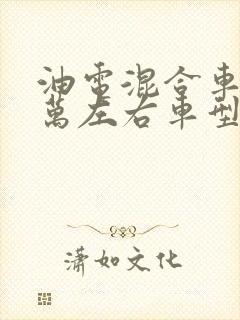 油電混合車
萬左右車型
瀟如文化